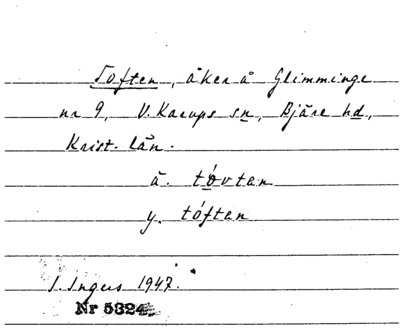 Toften, åker å Glimminge
nr 9, V. Karups sn, Bjäre hd,
Krist. län.
ä. tóvtan
y. tóftan
I. Ingers 1947.
Nr 5324